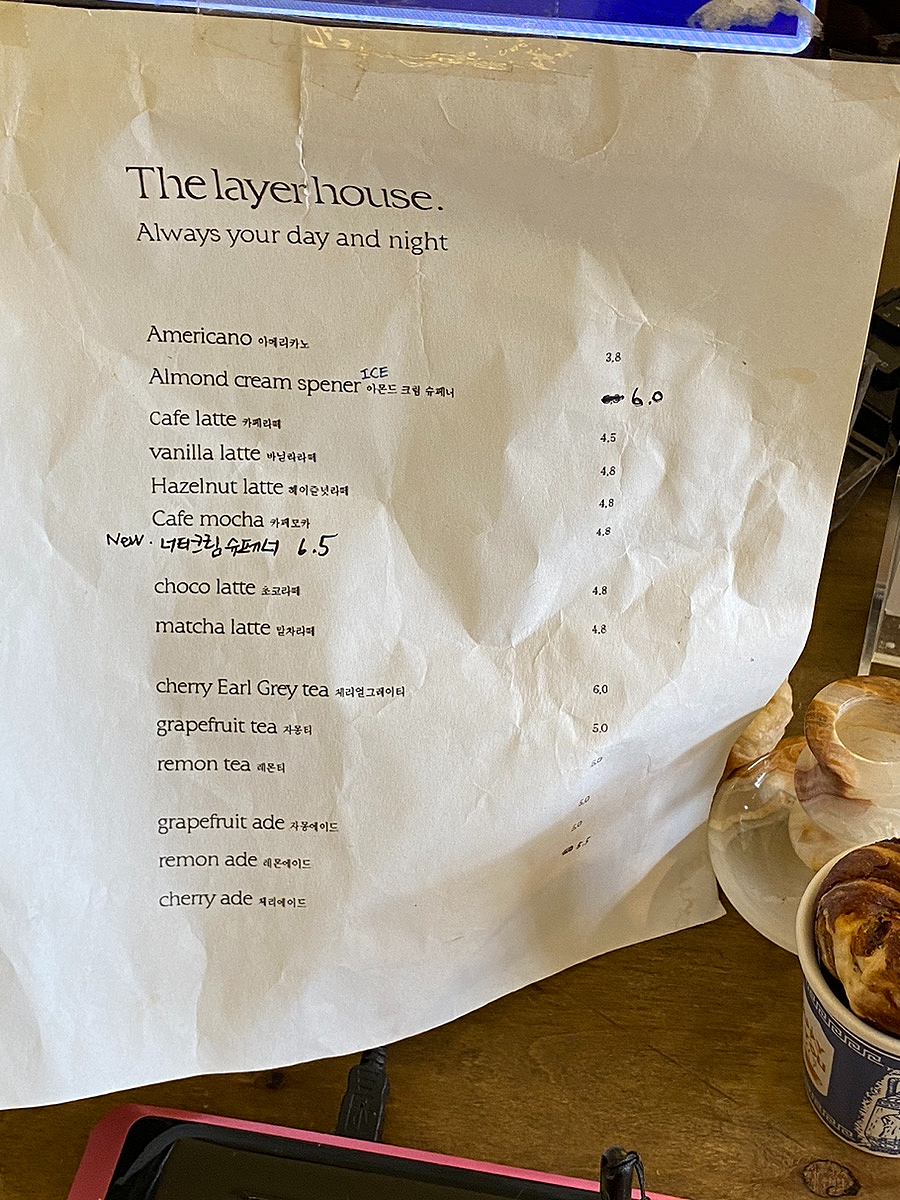 The layer house.
Always your day and night
Americano 아메리카노 3.8
ICE
Almond cream spener 아몬드 크림 슈페너 6.0
Cafe latte 카페라떼 4.5
vanilla latte 바닐라라떼 4.8
Hazelnut latte 헤이즐넛라떼 4.8
Cafe mocha 카페모카 4.8
New. 너티크림슈페너 6.5
choco latte 초코라떼 4.8
matcha latte 말차라떼 4.8
cherry Earl Grey tea 체리얼그레이티 6.0
grapefruit tea 자몽티 5.0
remon tea 레몬티 5.0
grapefruit ade 자몽에이드 5.0
remon ade 레몬에이드 5.0
cherry ade 체리에이드 5.5